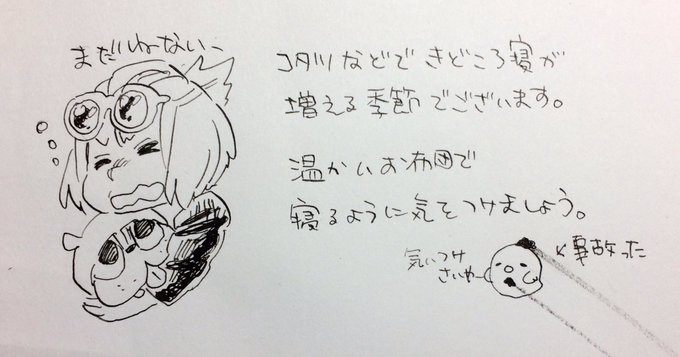 まだねないー
コタツなどで きどころ寝が
増える季節でございます。
温かいお布団で
寝るように気をつけましょう。
気ぃつけ
さいやー
事故った